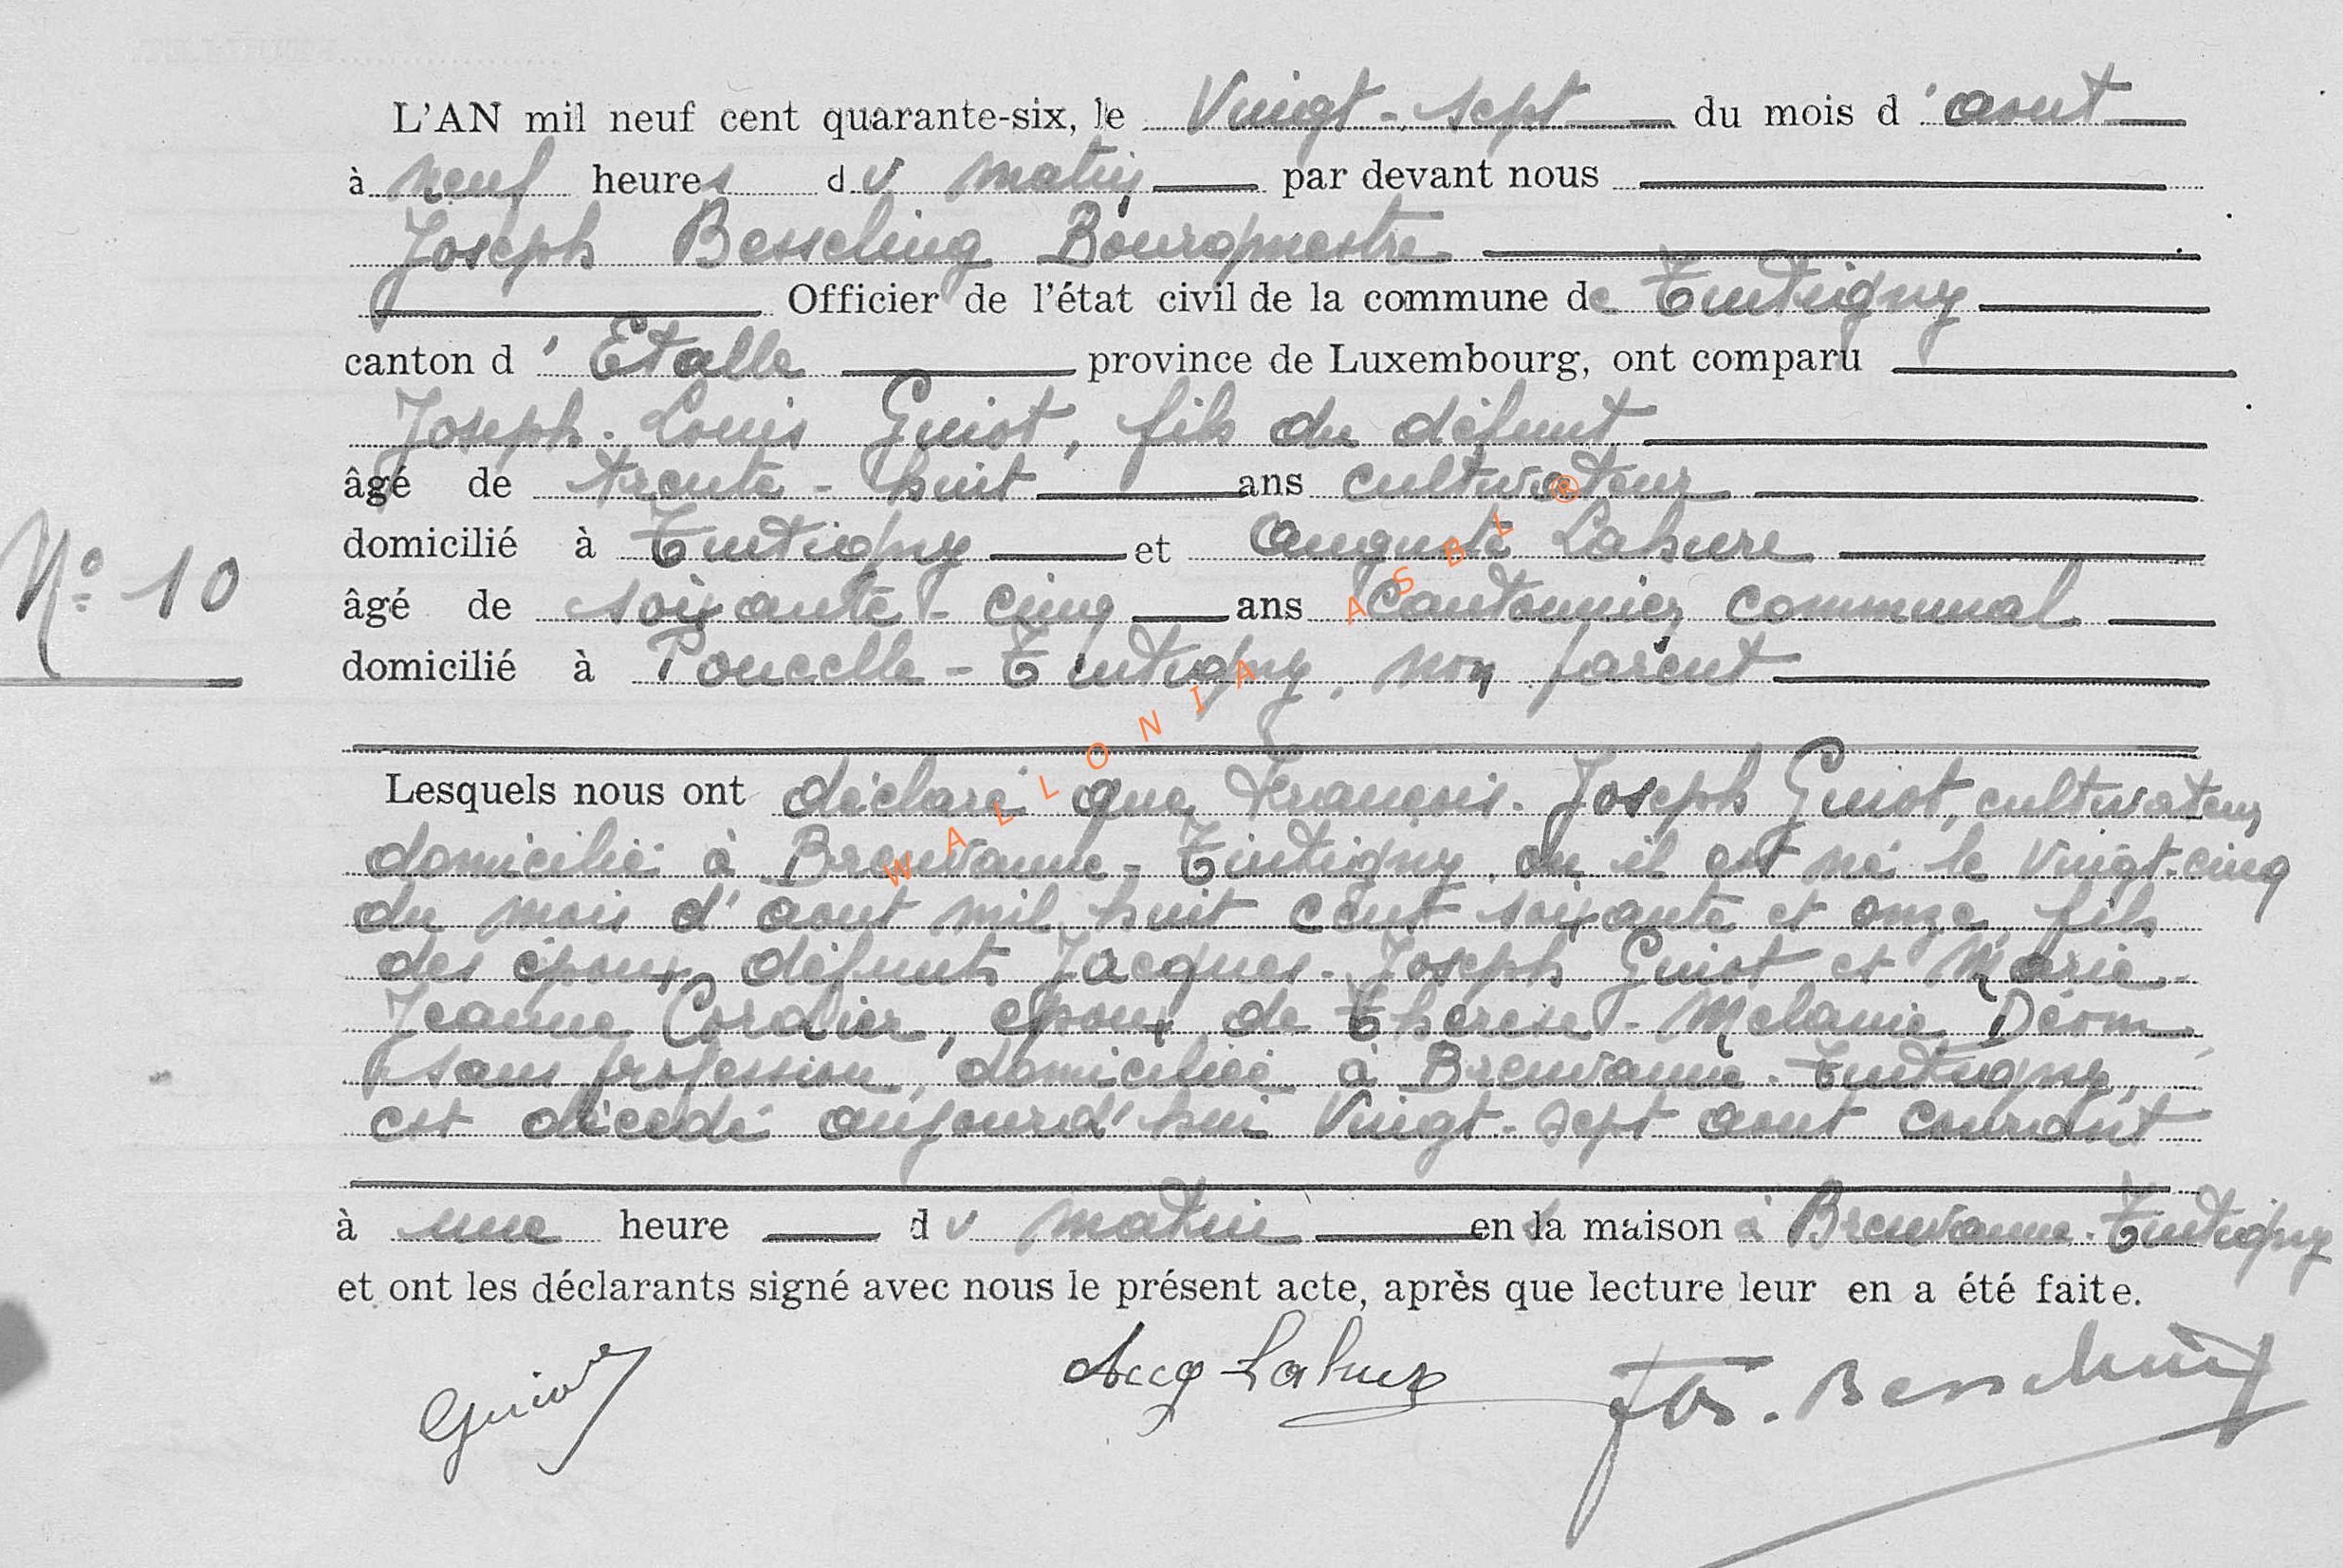 L'AN mil neuf cent quarante-six, le Vingt-sept du mois d'aout
à neuf heures du matin par devant nous
Joseph Besseling Bourgmestre
Officier de l'état civil de la commune de Tintigny
canton d'Etalle province de Luxembourg, ont comparu
Joseph-Louis Guiot, fils du défunt
âgé de trente-huit ans cultivateur
domicilié à Tintigny et Auguste Lahure
N° 10
âgé de soixante-cinq ans Cantonnier communal
domicilié à Poncelle-Tintigny, non parent
Lesquels nous ont déclaré que François-Joseph Guiot, cultivateur,
domicilié à Breuvanne-Tintigny, ou il est né le Vingt-cinq
du mois d'aout mil huit cent soixante et onze, fils
des époux défunts Jacques-Joseph Guiot et Marie-
Jeanne Cordier, époux de Thérèse-Mélanie Déom
sans profession, domiciliée à Breuvanne-Tintigny,
est décédé aujourd'hui Vingt-sept aout courant
à une heure du matin en sa maison à Breuvanne-Tintigny
et ont les déclarants signé avec nous le présent acte, après que lecture leur en a été faite.
Guiot Aug Lahure Jos. Besseling
WALLONIA ASBL ®